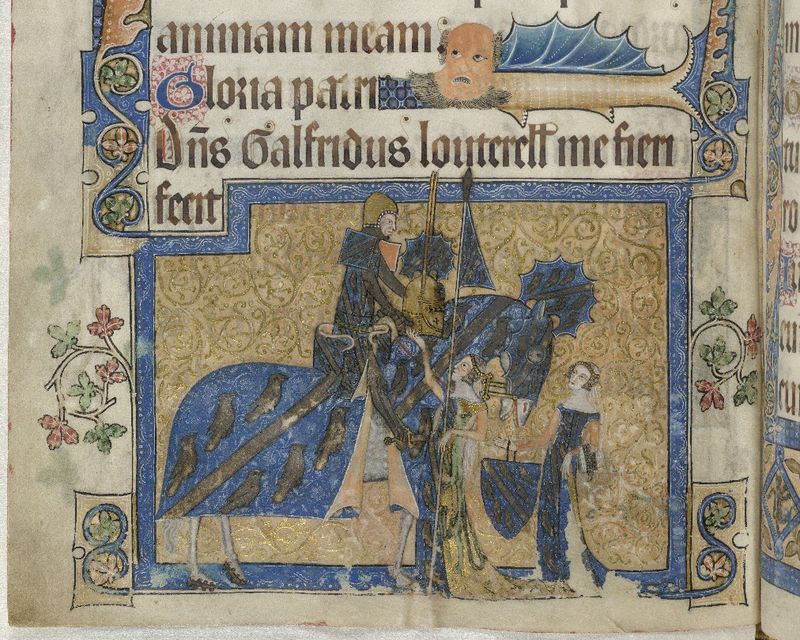 animam meam.
Gloria patri
Dñs Galfridus louterell me fieri
fecit